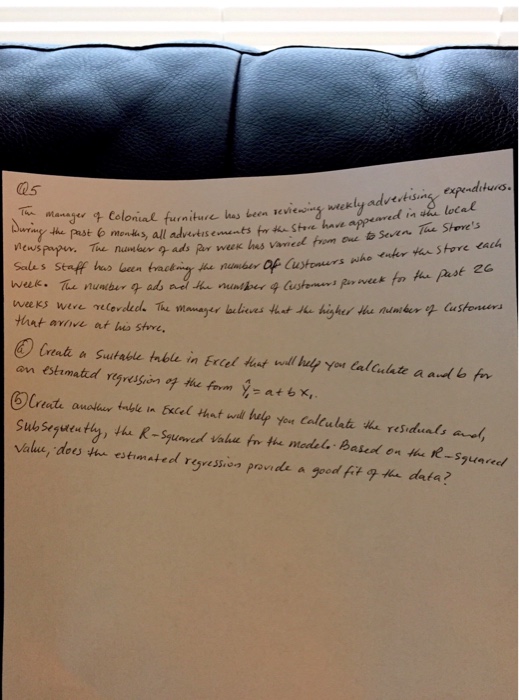 Q5
The manager of Colonial furniture has been reviewing weekly advertising expenditures.
During the past 6 months, all advertisements for the store have appeared in the local
newspaper. The number of ads per week has varied from one to seven. The Store's
Sales Staff has been tracking the number of Customers who enter the store each
week. The number of ads and the number of Customers per week for the past 26
weeks were recorded. The Manager believes that the higher the number of Customers
that arrive at his store.
(a) Create a Suitable table in Excel that will help you Calculate a and b for
an estimated regression of the form Ŷᵢ = a + b xᵢ.
(b) Create another table in Excel that will help you Calculate the residuals and,
Subsequently, the R-Squared value for the model. Based on the R-Squared
Value, does the estimated regression provide a good fit of the data?